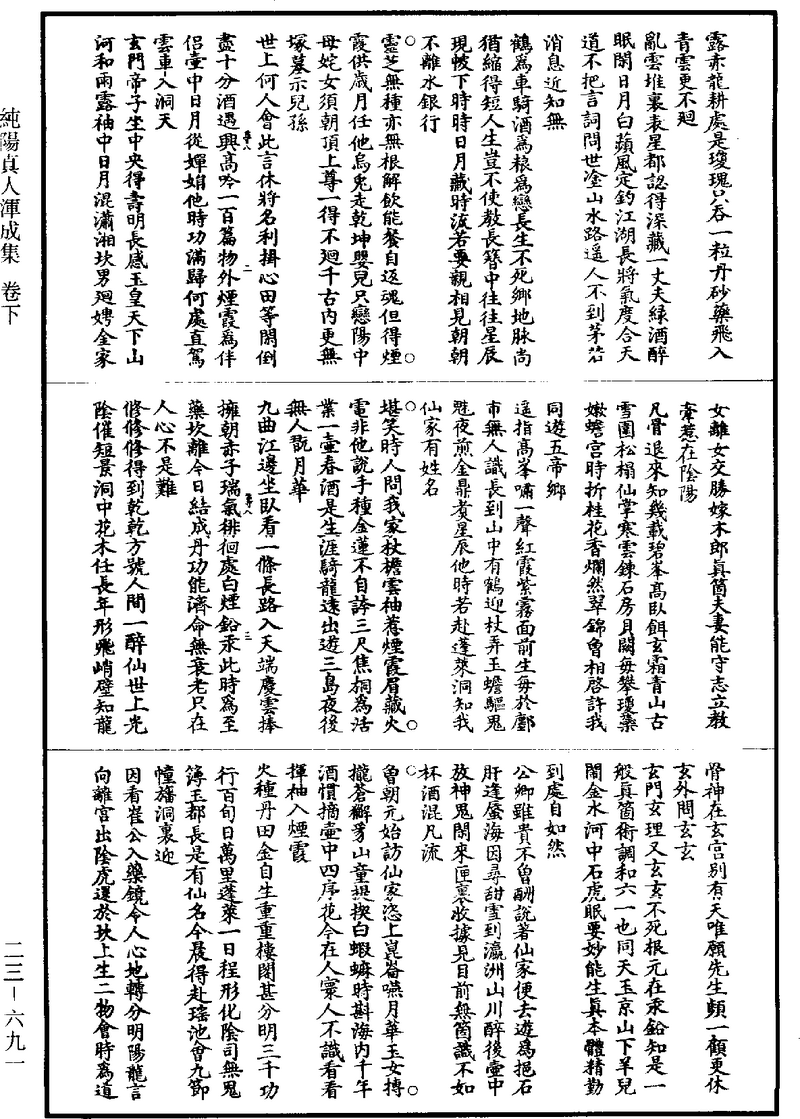 露赤龍耕處是瓊瑰只吞一粒丹砂藥飛入
青雲更不迴
亂雲堆裏表星都認得深藏一丈夫緑酒醉
眠閑日月白蘋風定釣江湖長將氣度合天
道不把言詞問世塗山水路遥人不到茅茨
消息近知無
鶴爲車騎酒爲粮爲戀長生不死鄉地脉尚
猶縮得短人生豈不使教長簪中往往星辰
現帔下時時日月藏時流若要親相見朝朝
不離水銀行
○靈芝無種亦無根解飲能餐自返魂但得煙○
霞供歳月任他烏兎走乾坤嬰兒只戀陽中
母姹女須朝頂上尊一得不迴千古内更無
塚墓示兒孫
世上何人會此言休將名利掛心田等閑倒
盡十分酒遇興髙吟一百篇物外煙霞爲伴
侣壺中日月從嬋娟他時功滿歸何處直駕
雲車入洞天
玄門帝子坐中央得壽明長感玉皇天下山
河和雨露袖中日月混瀟湘坎男迴娉金家
女離女交勝嫁木郎真箇夫妻能守志立教
牽惹在陰陽
凡骨退來知幾載碧峯髙臥餌玄霜青山古
雪圍松榻仙掌寒雲鍊石房貝闕每攀瓊蘂
嫩蟾宮時折桂花香爛然翠錦曾相啓許我
同遊五帝鄉
遥指髙峯嘯一聲紅霞紫霧面前生每於鄽
市無人識長到山中有鶴迎杖弄玉蟾驅鬼
魅夜煎金鼎煑星辰他時若赴蓬萊洞知我
仙家有姓名
○堪笑時人問我家杖擔雲袖惹煙霞眉藏火○
電非他說手種金蓮不自誇三尺焦桐爲活
業一壺春酒是生涯騎龍遠出遊三島夜後
無人翫月華
九曲江邊坐臥看一條長路入天端慶雲捧
擁朝赤子瑞氣徘徊處白煙鉛汞此時爲至
藥坎離今日結成丹功能濟命無衰老只在
人心不是難
修修修得到乾乾方號人間一醉仙世上光
陰催短景洞中花木任長年形飛峭壁知龍
骨神在玄宫别有天唯願先生頻一顧更休
玄外問玄玄
玄門玄理又玄玄不死根元在汞鉛知是一
般真箇術調和六一也同天玉京山下羊兒
閙金水河中石虎眠要妙能生真本體精勤
到處自如然
公卿雖貴不曾酬說著仙家便去遊爲挹石
肝逢蜃海因尋甜雪到瀛洲山川醉後壺中
放神鬼閑來匣裏收據見目前無箇識不如
杯酒混凡流
○曾朝元始訪仙家恣上崑崙嚥月華玉女摶○
攏蒼獬豸山童提挈白蝦蟆時斟海内千年
酒慣摘壺中四序花今在人寰人不識看看
揮袖入煙霞
火種丹田金自生重重樓閣甚分明三千功
行百旬日萬里蓬萊一日程形化陰司無鬼
簿玉都長是有仙名今晨得赴瑤池會九節
幢旛洞裏迎
因看崔公入藥鏡令人心地轉分明陽龍言
向離宮出陰虎還於坎上生二物會時爲道
純陽真人渾成集 卷下
二三－六九一